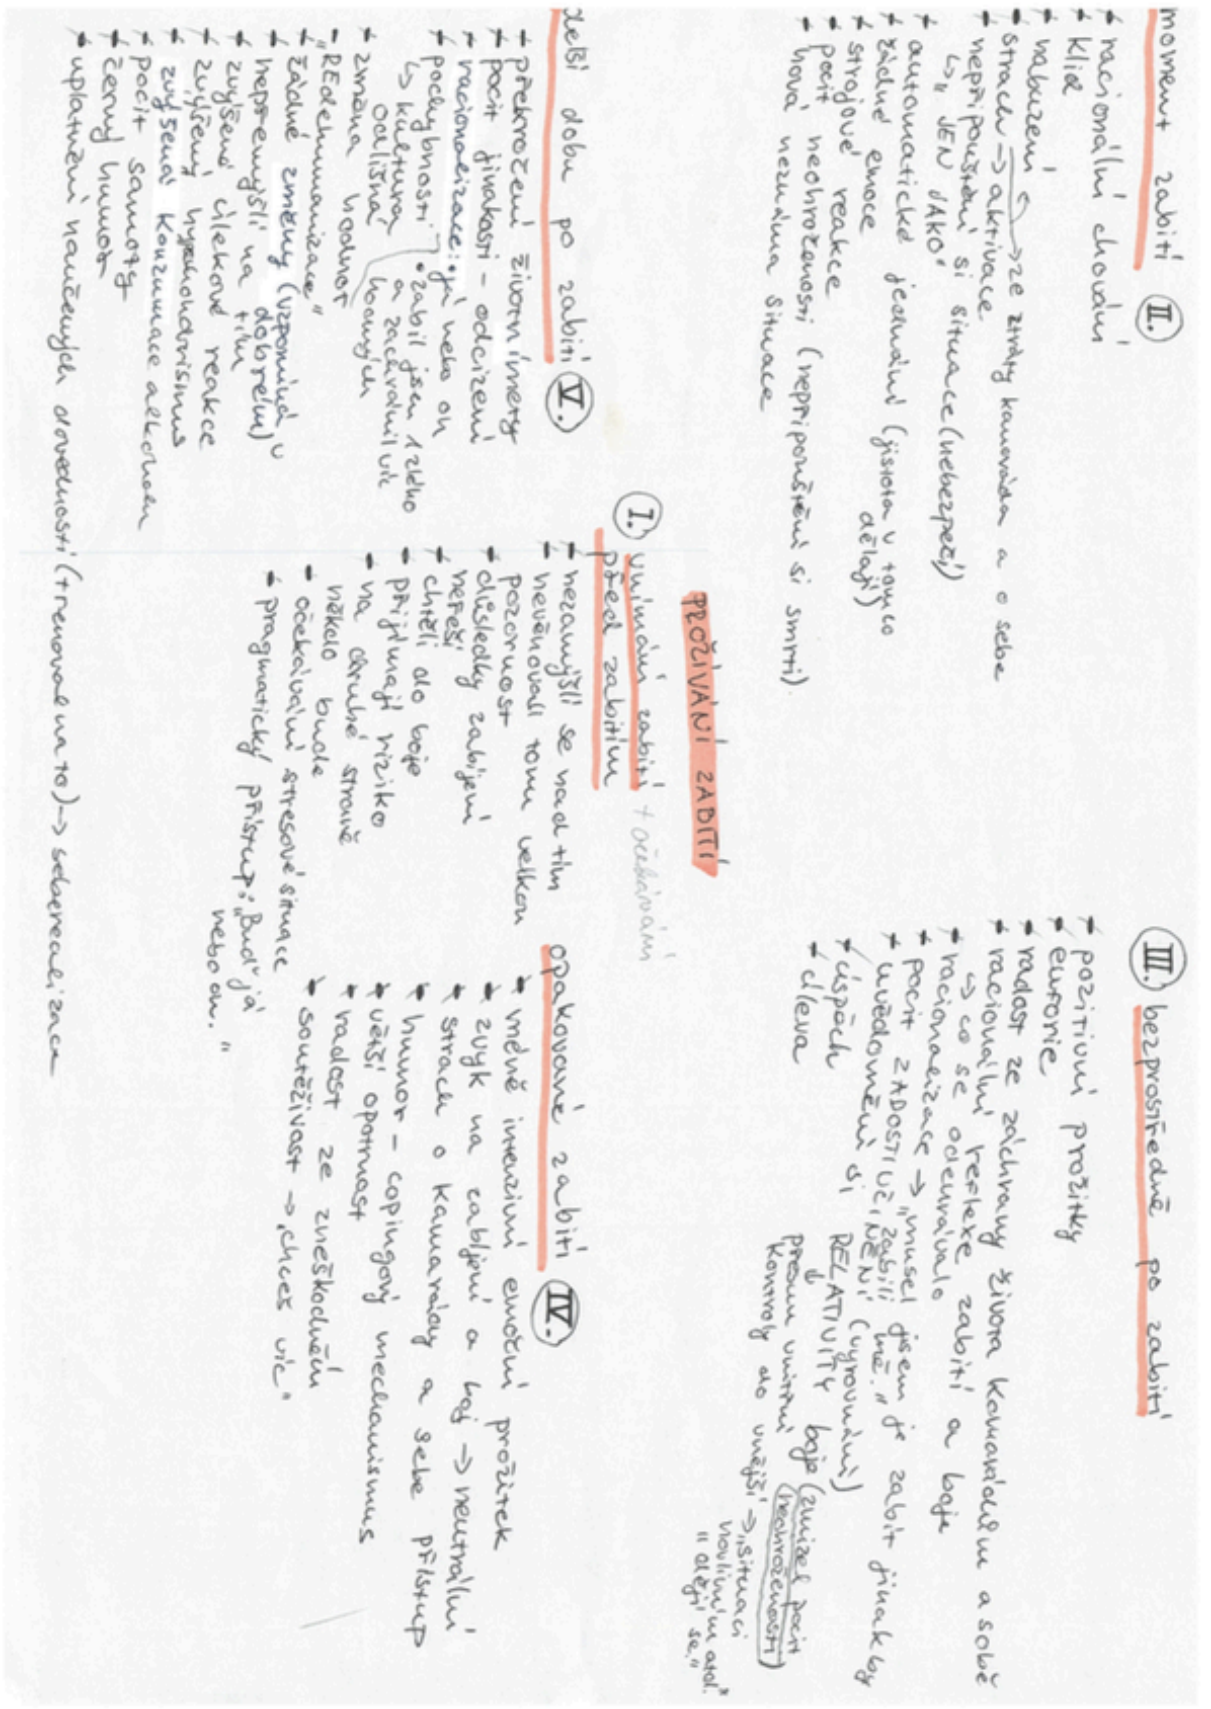 PROŽÍVÁNÍ ZABITÍ
I. vnímání zabití + očekávání
před zabitím
- nezamýšlí se nad tím
- nevěnovali tomu velkou
pozornost
- důsledky zabíjení
neřeší
- chtěli do boje
- přijímají riziko
- na druhé straně
někdo bude
- očekávání stresové situace
- pragmatický přístup: „Buď já
nebo on."
moment zabití II.
- racionální chování
- klid
- nabuzení
- strach → aktivace → ze ztráty kamaráda a o sebe
- nepřipouštění si situace (nebezpečí)
↳ „JEN JAKO"
- automatické jednání (jistota v tom co
dělají)
- žádné emoce
- strojové reakce
- pocit neohroženosti (nepřipouštění si smrti)
- nová neznáma situace
III. bezprostředně po zabití
- pozitivní prožitky
- euforie
- radost ze záchrany života kamarádům a sobě
- racionální reflexe zabití a boje
→ co se odehrávalo
- racionalizace → „musel jsem je zabít jinak by
zabili mě."
- pocit ZADOSTIUČINĚNÍ (vyrovnání)
- uvědomění si RELATIVITY boje (zmizel pocit
neohroženosti)
↓
přesun vnitřní
kontroly do vnější → „situaci
neovlivním ať."
„ději se."
- úspěch
- úleva
opakované zabití IV.
- méně intenzivní emoční prožitek
- zvyk na zabíjení a boj → neutrální
přístup
- strach o kamarády a sebe
- humor - copingový mechanismus
- větší opatrnost
- radost ze zneškodnění
- soutěživost → „chceš víc"
delší dobu po zabití V.
- překročení životní mety
- pocit jinakosti - odcizení
- racionalizace: • já nebo on
• zabil jsem 1 zlého
a zachránil víc
hodných
- pochybnosti
↳ kultura
odlišná
- změna hodnot
- „REdehumanizace"
- žádné změny (vzpomíná v
dobrém)
- nepřemýšlí na tím
- zvýšené úlekové reakce
- zvýšený hypochondrismus
- zvýšená konzumace alkoholu
- pocit samoty
- černý humor
- uplatnění naučených dovedností (trénoval na to) → seberealizace